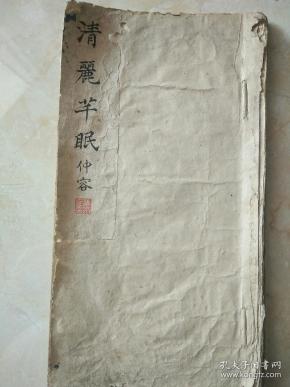 清麗芊眠
仲容
孔夫子旧书网